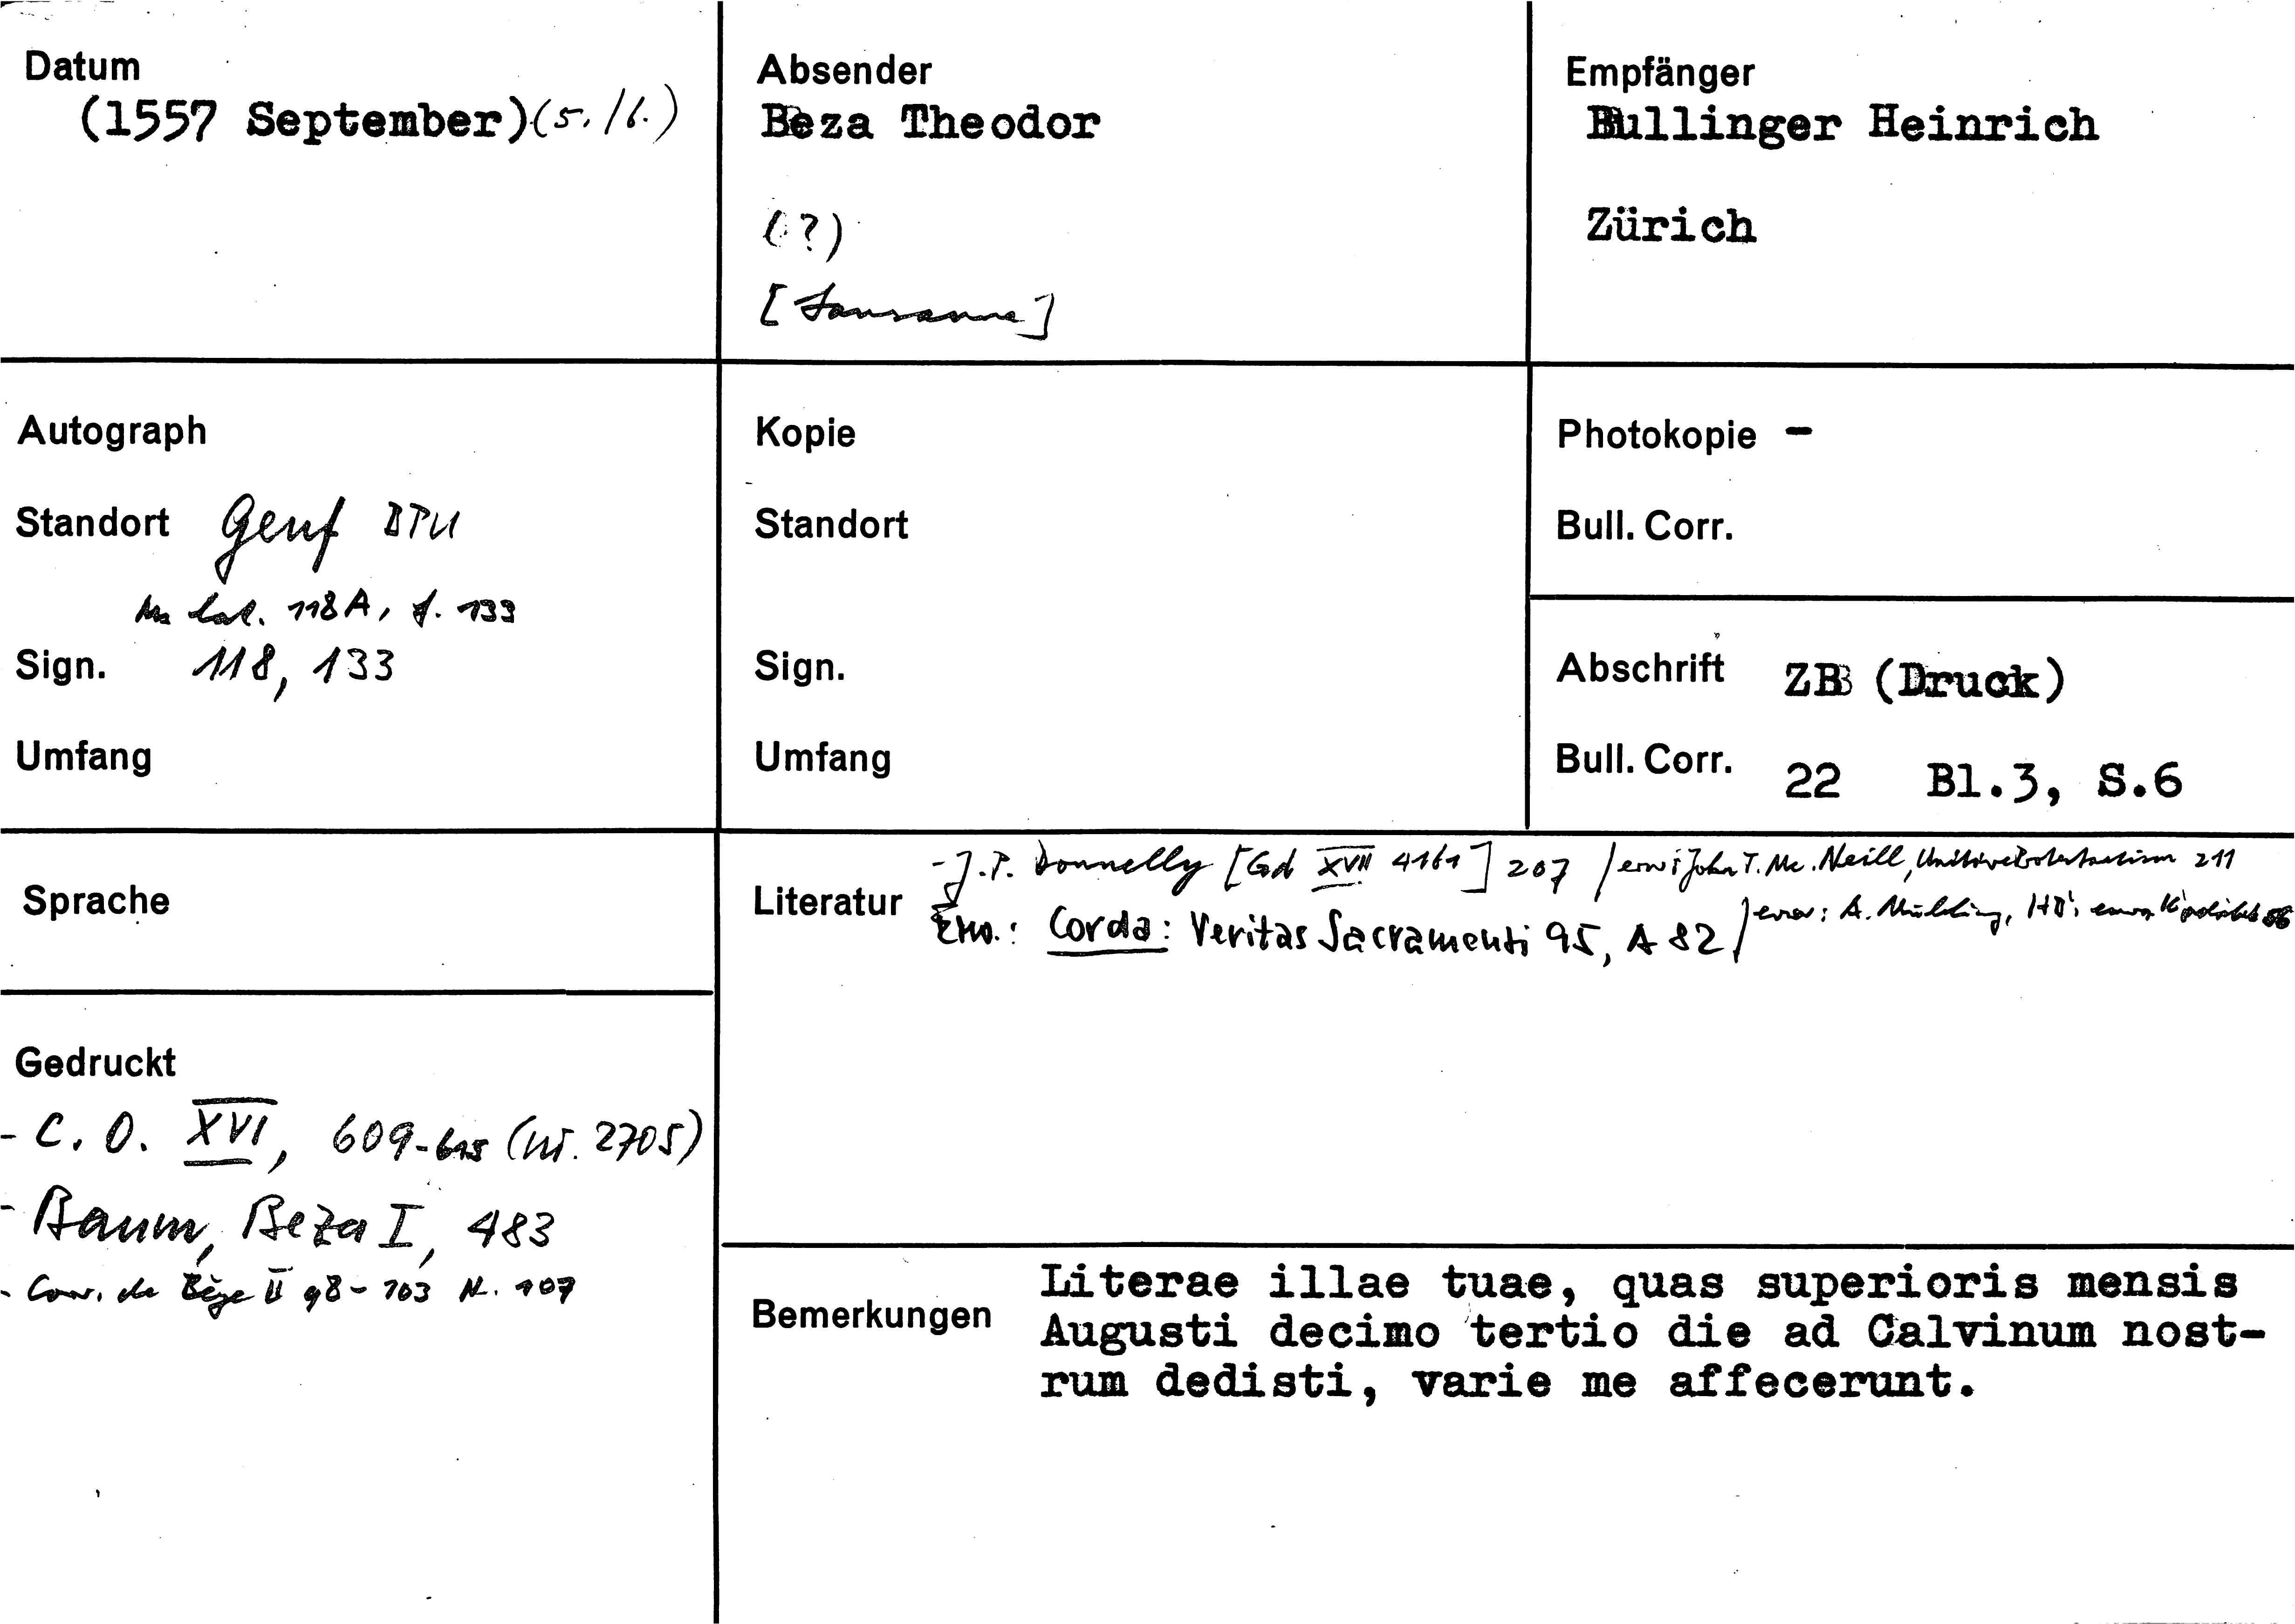 Datum
(1557 September) (5./6.)
Absender
Beza Theodor
(?)
[Lausanne]
Empfänger
Bullinger Heinrich
Zürich
Autograph
Standort Genf BPU
Ms lat. 118A, f. 133
Sign. 118, 133
Umfang
Kopie
Standort
Sign.
Umfang
Photokopie -
Bull. Corr.
Abschrift ZB (Druck)
Bull. Corr. 22 Bl.3, S.6
Sprache
Gedruckt
- C. O. XVI, 609-615 (Nr. 2705)
- Baum, Beza I, 483
- Corr. de Bèze II 98-103 N. 107
Literatur
- J. P. Donnelly [Gd XVII 4161] 207 / erw: John T. Mc. Neill, Unitive Protestantism 211
Erw.: Corda: Veritas Sacramenti 95, A 82 / erw: A. Mühling, HB's europ. K'politik
Bemerkungen
Literae illae tuae, quas superioris mensis
Augusti decimo tertio die ad Calvinum nost-
rum dedisti, varie me affecerunt.